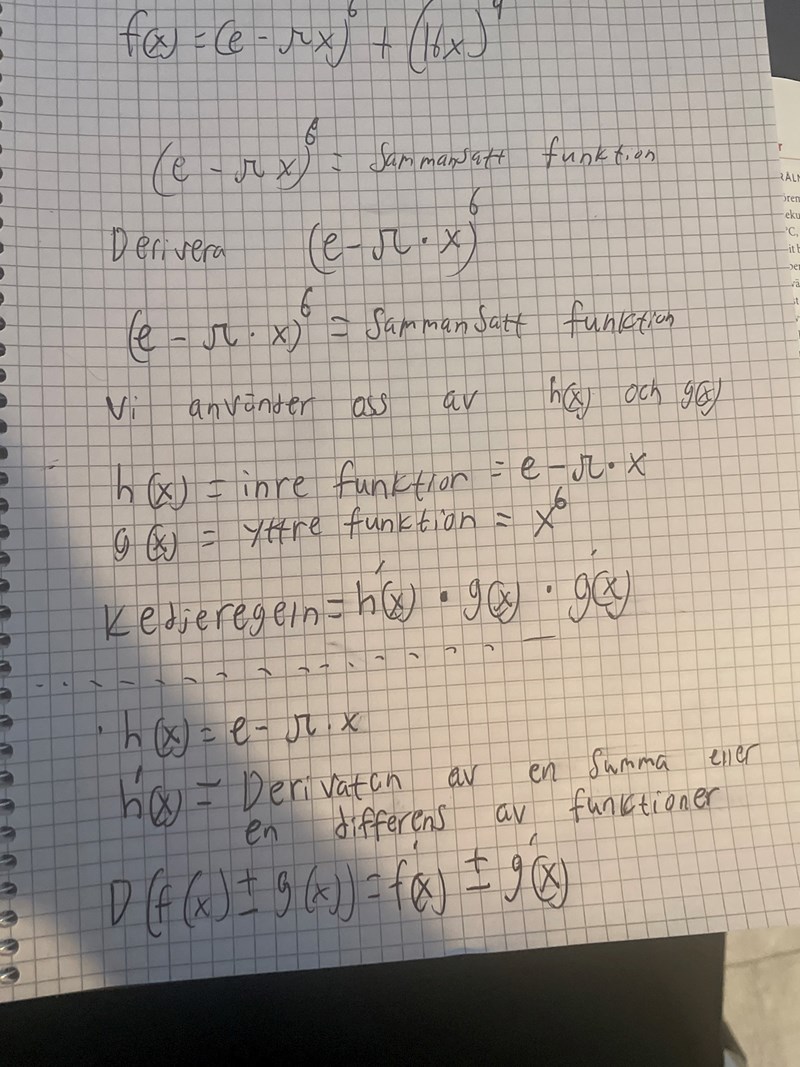 f(x) = (e - πx)^6 + (16x)^4
(e - π x)^6 = Sammansatt funktion
Derivera (e - π · x)^6
(e - π · x)^6 = Sammansatt funktion
Vi använder oss av h(x) och g(x)
h(x) = inre funktion = e - π · x
g(x) = yttre funktion = x^6
Kedjeregeln = h'(x) · g(x) · g'(x)
h(x) = e - π · x
h'(x) = Derivatan av en Summa eller
en differens av funktioner
D(f(x) ± g(x)) = f'(x) ± g'(x)